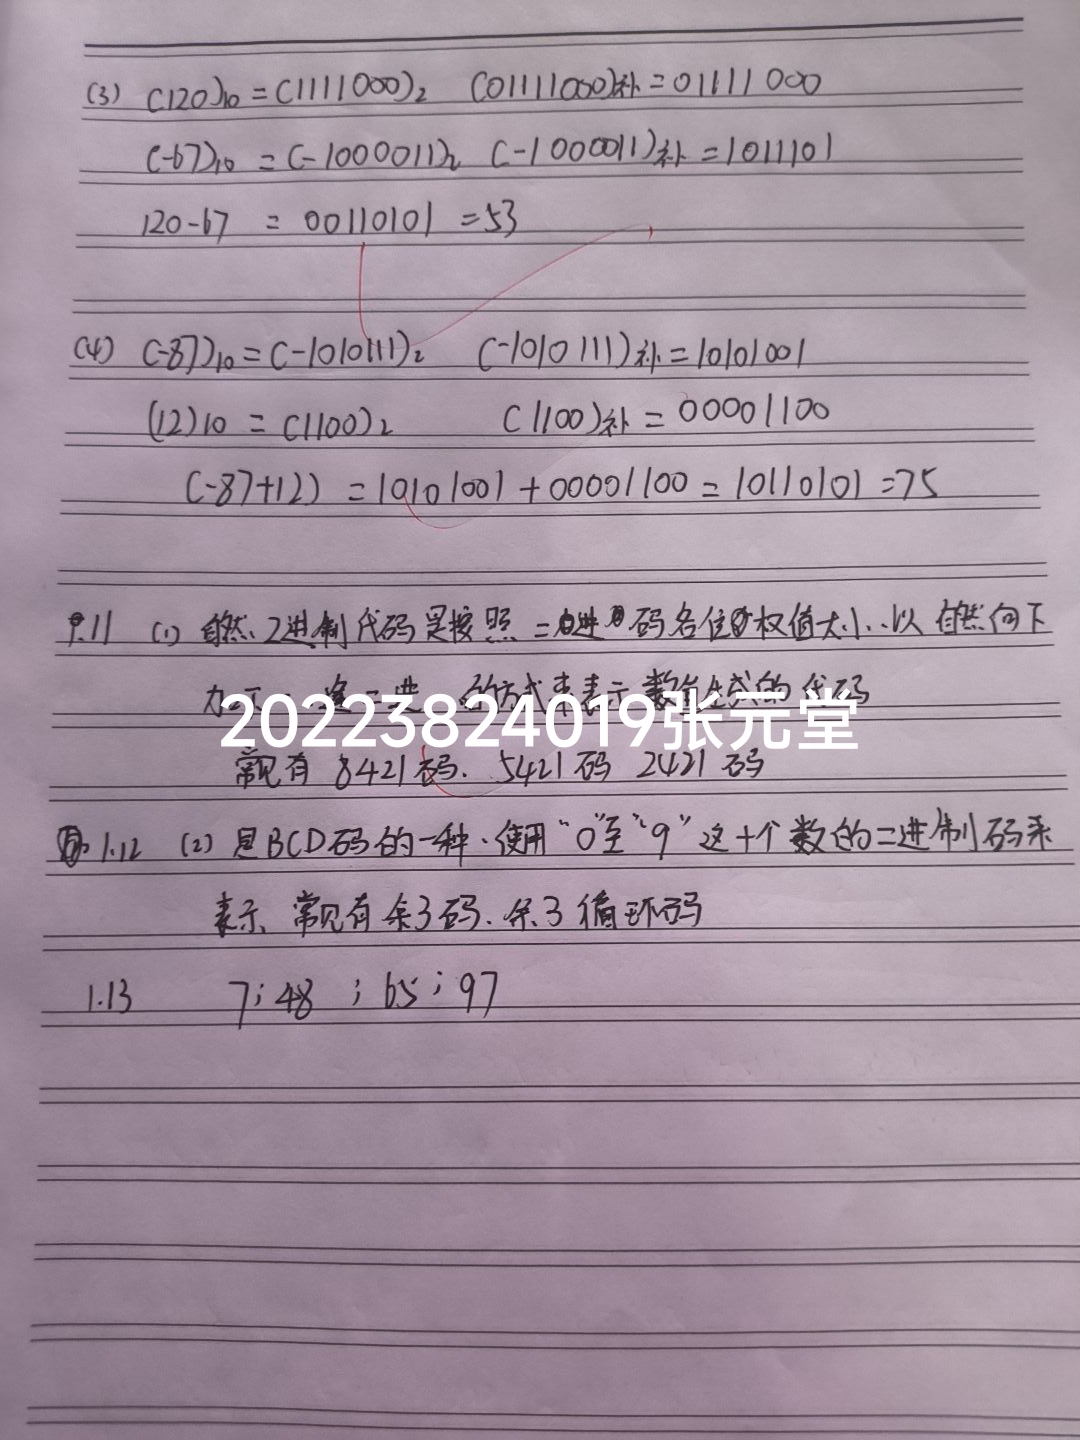 (3) (120)10 = (1111000)2 (01111000)补 = 01111000
(-67)10 = (-1000011)2 (-1000011)补 = 1011101
120-67 = 00110101 = 53
(4) (-87)10 = (-1010111)2 (-1010111)补 = 10101001
(12)10 = (1100)2 (1100)补 = 00001100
(-87+12) = 10101001 + 00001100 = 10110101 = 75
1.11 (1) 自然2进制代码是按照二进码各位权值大小..以自然向下
的方式来表示数值生成的代码
20223824019张元堂
常见有 8421码. 5421码 2421码
1.12 (2) 是BCD码的一种.使用“0”至“9”这十个数的二进制码来
表示、常见有余3码.余3循环码
1.13 7; 48 ; 65; 97